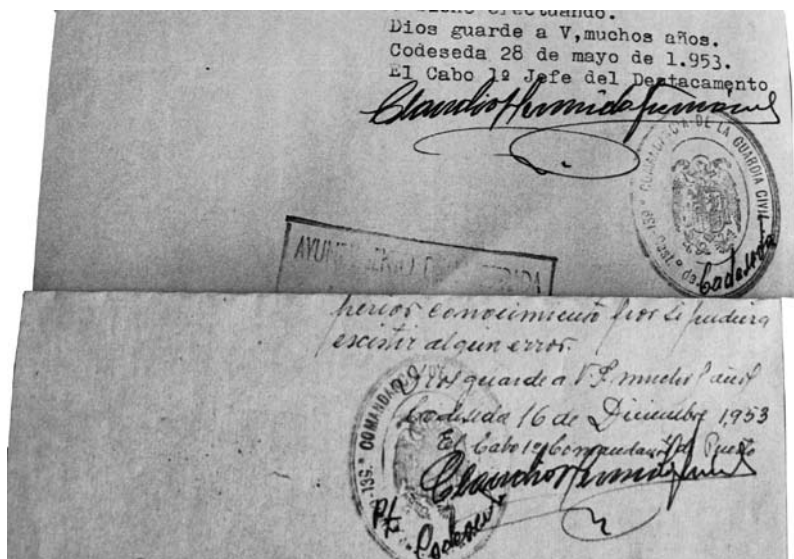 efectuando.
Dios guarde a V,muchos años.
Codeseda 28 de mayo de 1.953.
El Cabo 1º Jefe del Destacamento
Claudio Hermida
139ª COMANDANCIA DE LA GUARDIA CIVIL
Dest.º de Codeseda
perior conocimiento por si pudiera
existir algun error.
Dios guarde a V.S. muchos años
Codeseda 16 de Diciembre 1,953
El Cabo 1º Comandante del Puesto
Claudio Hermida
139.ª COMANDANCIA
Codeseda